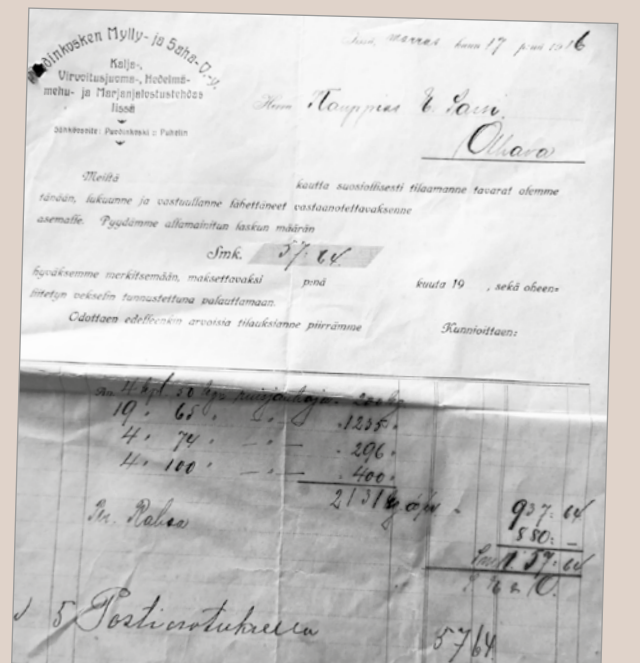 Mylly- ja Saha-O.-Y.
Kalja-,
Virvoitusjuoma-, Hedelmä-
mehu- ja Marjanjalostustehdas
Iissä
Sähköosoite: Puodinkoski :: Puhelin
kuun 17 p:nä 1916
Herra Kauppias E.
Olhava
Meiltä kautta suosiollisesti tilaamanne tavarat olemme
tänään, lukuunne ja vastuullanne lähettäneet vastaanotettavaksenne
asemalle. Pyydämme allamainitun laskun määrän
Smk. 57: 64
hyväksemme merkitsemään, maksettavaksi p:nä kuuta 19 , sekä oheen-
liitetyn vekselin tunnustettuna palauttamaan.
Odottaen edelleenkin arvoisia tilauksianne piirrämme
Kunnioittaen:
4 50 kg
19 " 65 " " 1235 "
4 " 74 " " 296 "
4 " 100 " " 400 "
2131 kg 937: 64
Per. Rahaa 880: —
Smk 57: 64
5 Postiosotuksella 57 64